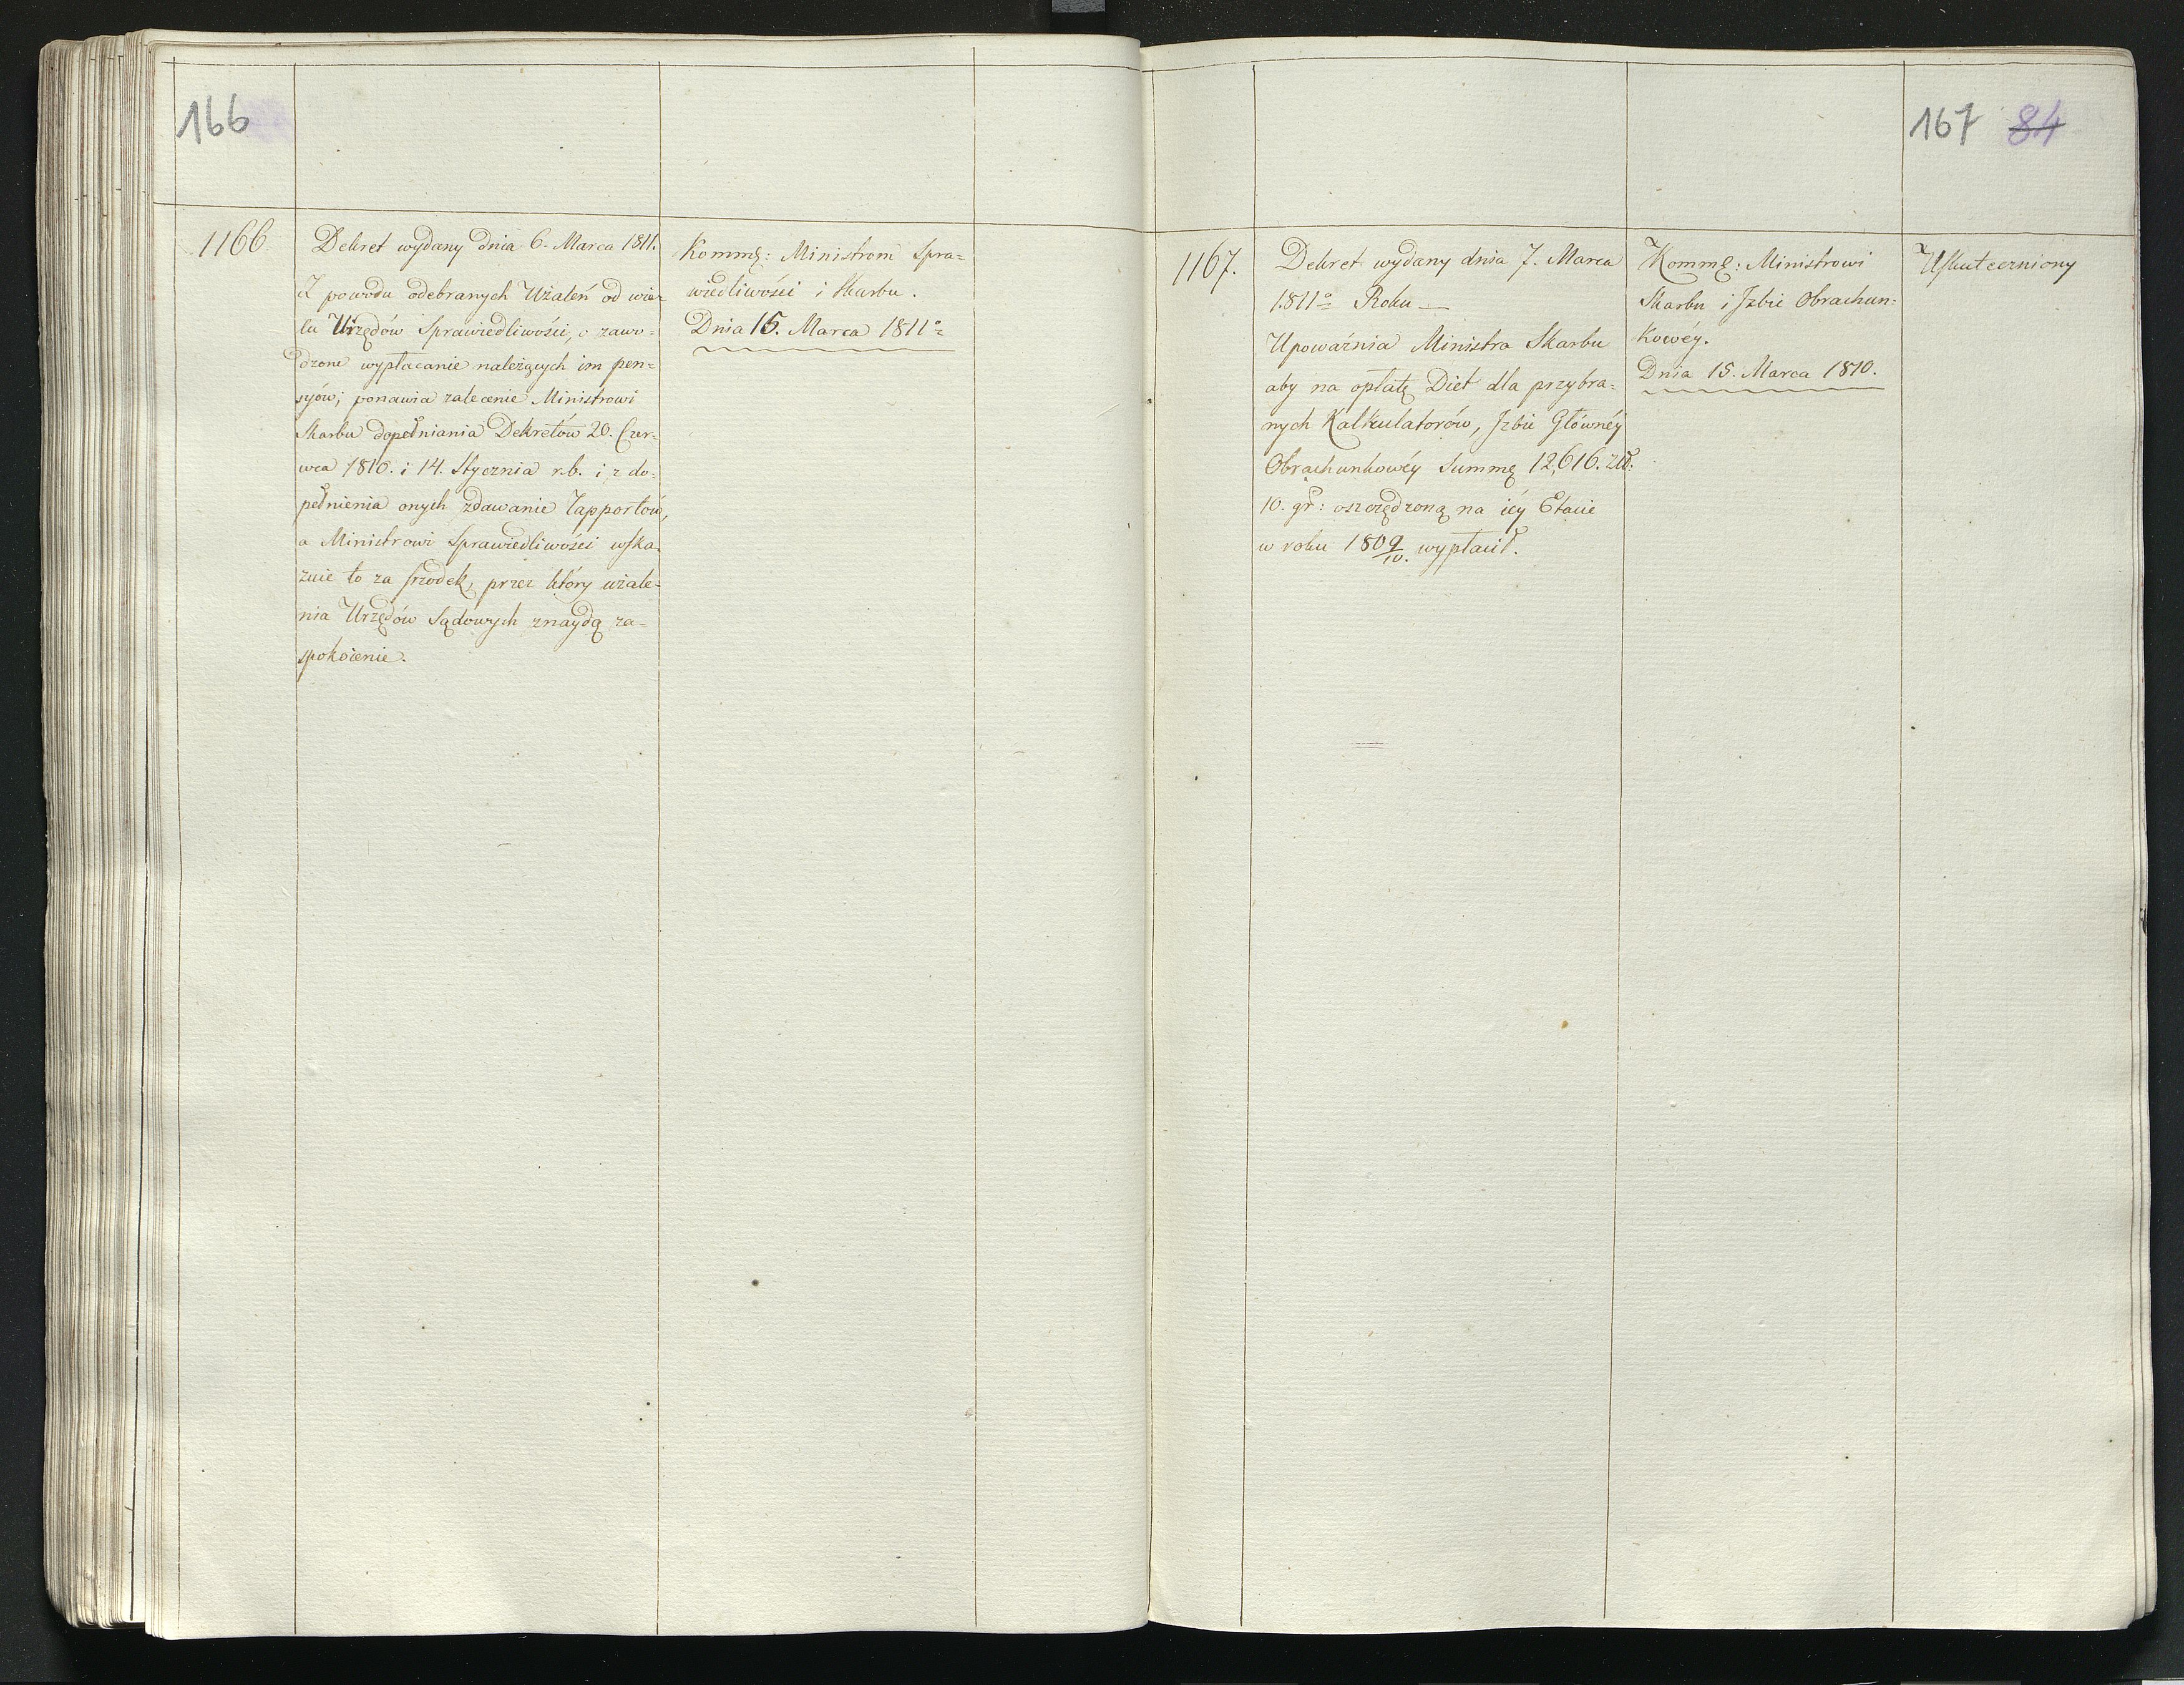 166
1166.
Dekret wydany dnia 6. Marca 1811.
Z powodu odebranych Użaleń od wie-
lu Urzędów Sprawiedliwości, o zawo-
dzone wypłacanie należących im pen=
syów; ponawia zalecenie Ministrowi
Skarbu dopełniania Dekretów 20. Czer-
wca 1810. i 14. Stycznia r.b. i z do-
pełnienia onych zdawanie Rapportów,
a Ministrowi Sprawiedliwości wska-
zuie to za srzodek, przez który użale=
nia Urzędów Sądowych znaydą za=
spokoienie.
Kommę: Ministrom Spra=
wiedliwości i Skarbu.
Dnia 15. Marca 1811o
167 84
1167.
Dekret wydany dnia 7. Marca
1811o Roku —
Upoważnia Ministra Skarbu
aby na opłatę Diet dla przybra=
nych Kalkulatorów, Izbie Główney
Obrachunkowéy Summę 12,616. złł.
10. gr: oszczędzoną na iéy Etacie
w roku 1809/10. wypłacił.
Kommę: Ministrowi
Skarbu i Izbie Obrachun=
kowéy.
Dnia 15. Marca 1810.
Uskuteczniony